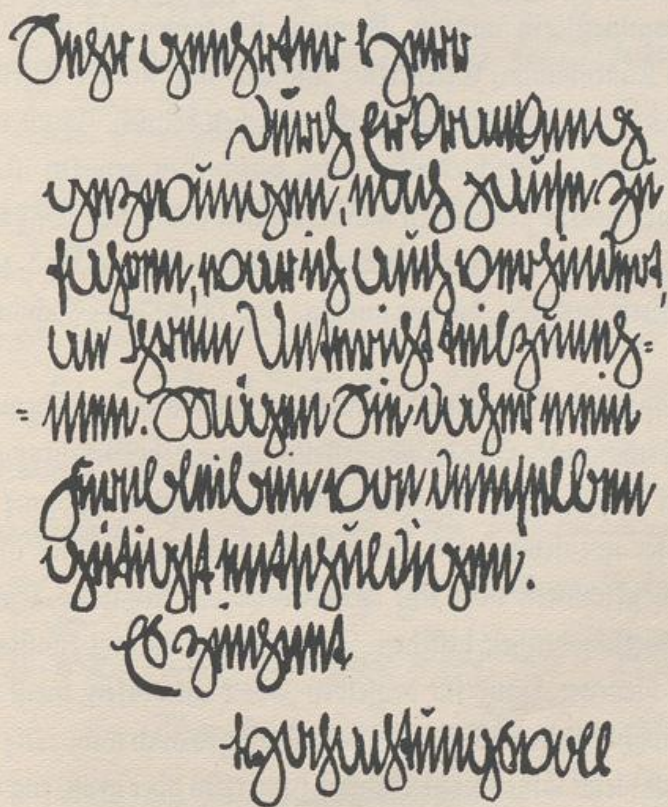 Sehr geehrter Herr
durch Erkrankung
gezwungen, nach Hause zu
fahren, war ich auch verhindert,
an Ihrem Unterricht teilzuneh=
=men. Mögen Sie daher mein
Fernbleiben von demselben
gütigst entschuldigen.
Es zeichnet
hochachtungsvoll